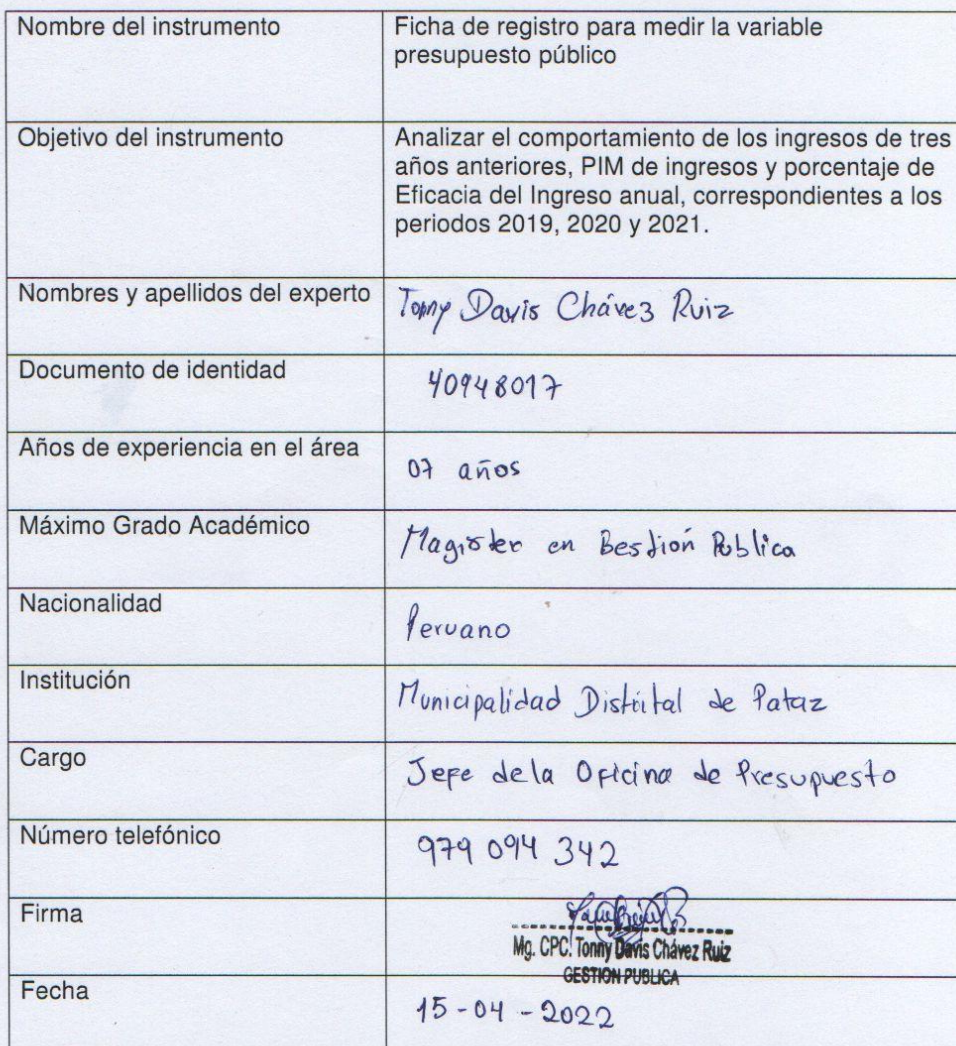 Nombre del instrumento
Ficha de registro para medir la variable
presupuesto público
Objetivo del instrumento
Analizar el comportamiento de los ingresos de tres
años anteriores, PIM de ingresos y porcentaje de
Eficacia del Ingreso anual, correspondientes a los
periodos 2019, 2020 y 2021.
Nombres y apellidos del experto
Tonny Davis Chávez Ruiz
Documento de identidad
40948017
Años de experiencia en el área
07 años
Máximo Grado Académico
Magister en Gestión Publica
Nacionalidad
Peruano
Institución
Municipalidad Distrital de Pataz
Cargo
Jefe de la Oficina de Presupuesto
Número telefónico
979 094 342
Firma
Mg. CPC. Tonny Davis Chávez Ruiz
GESTION PUBLICA
Fecha
15-04-2022